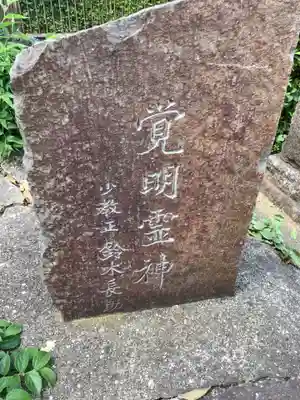 覚明霊神
少教正 鈴木長